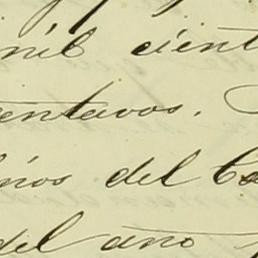 mil cient
entavos.
inos del Ca
del año